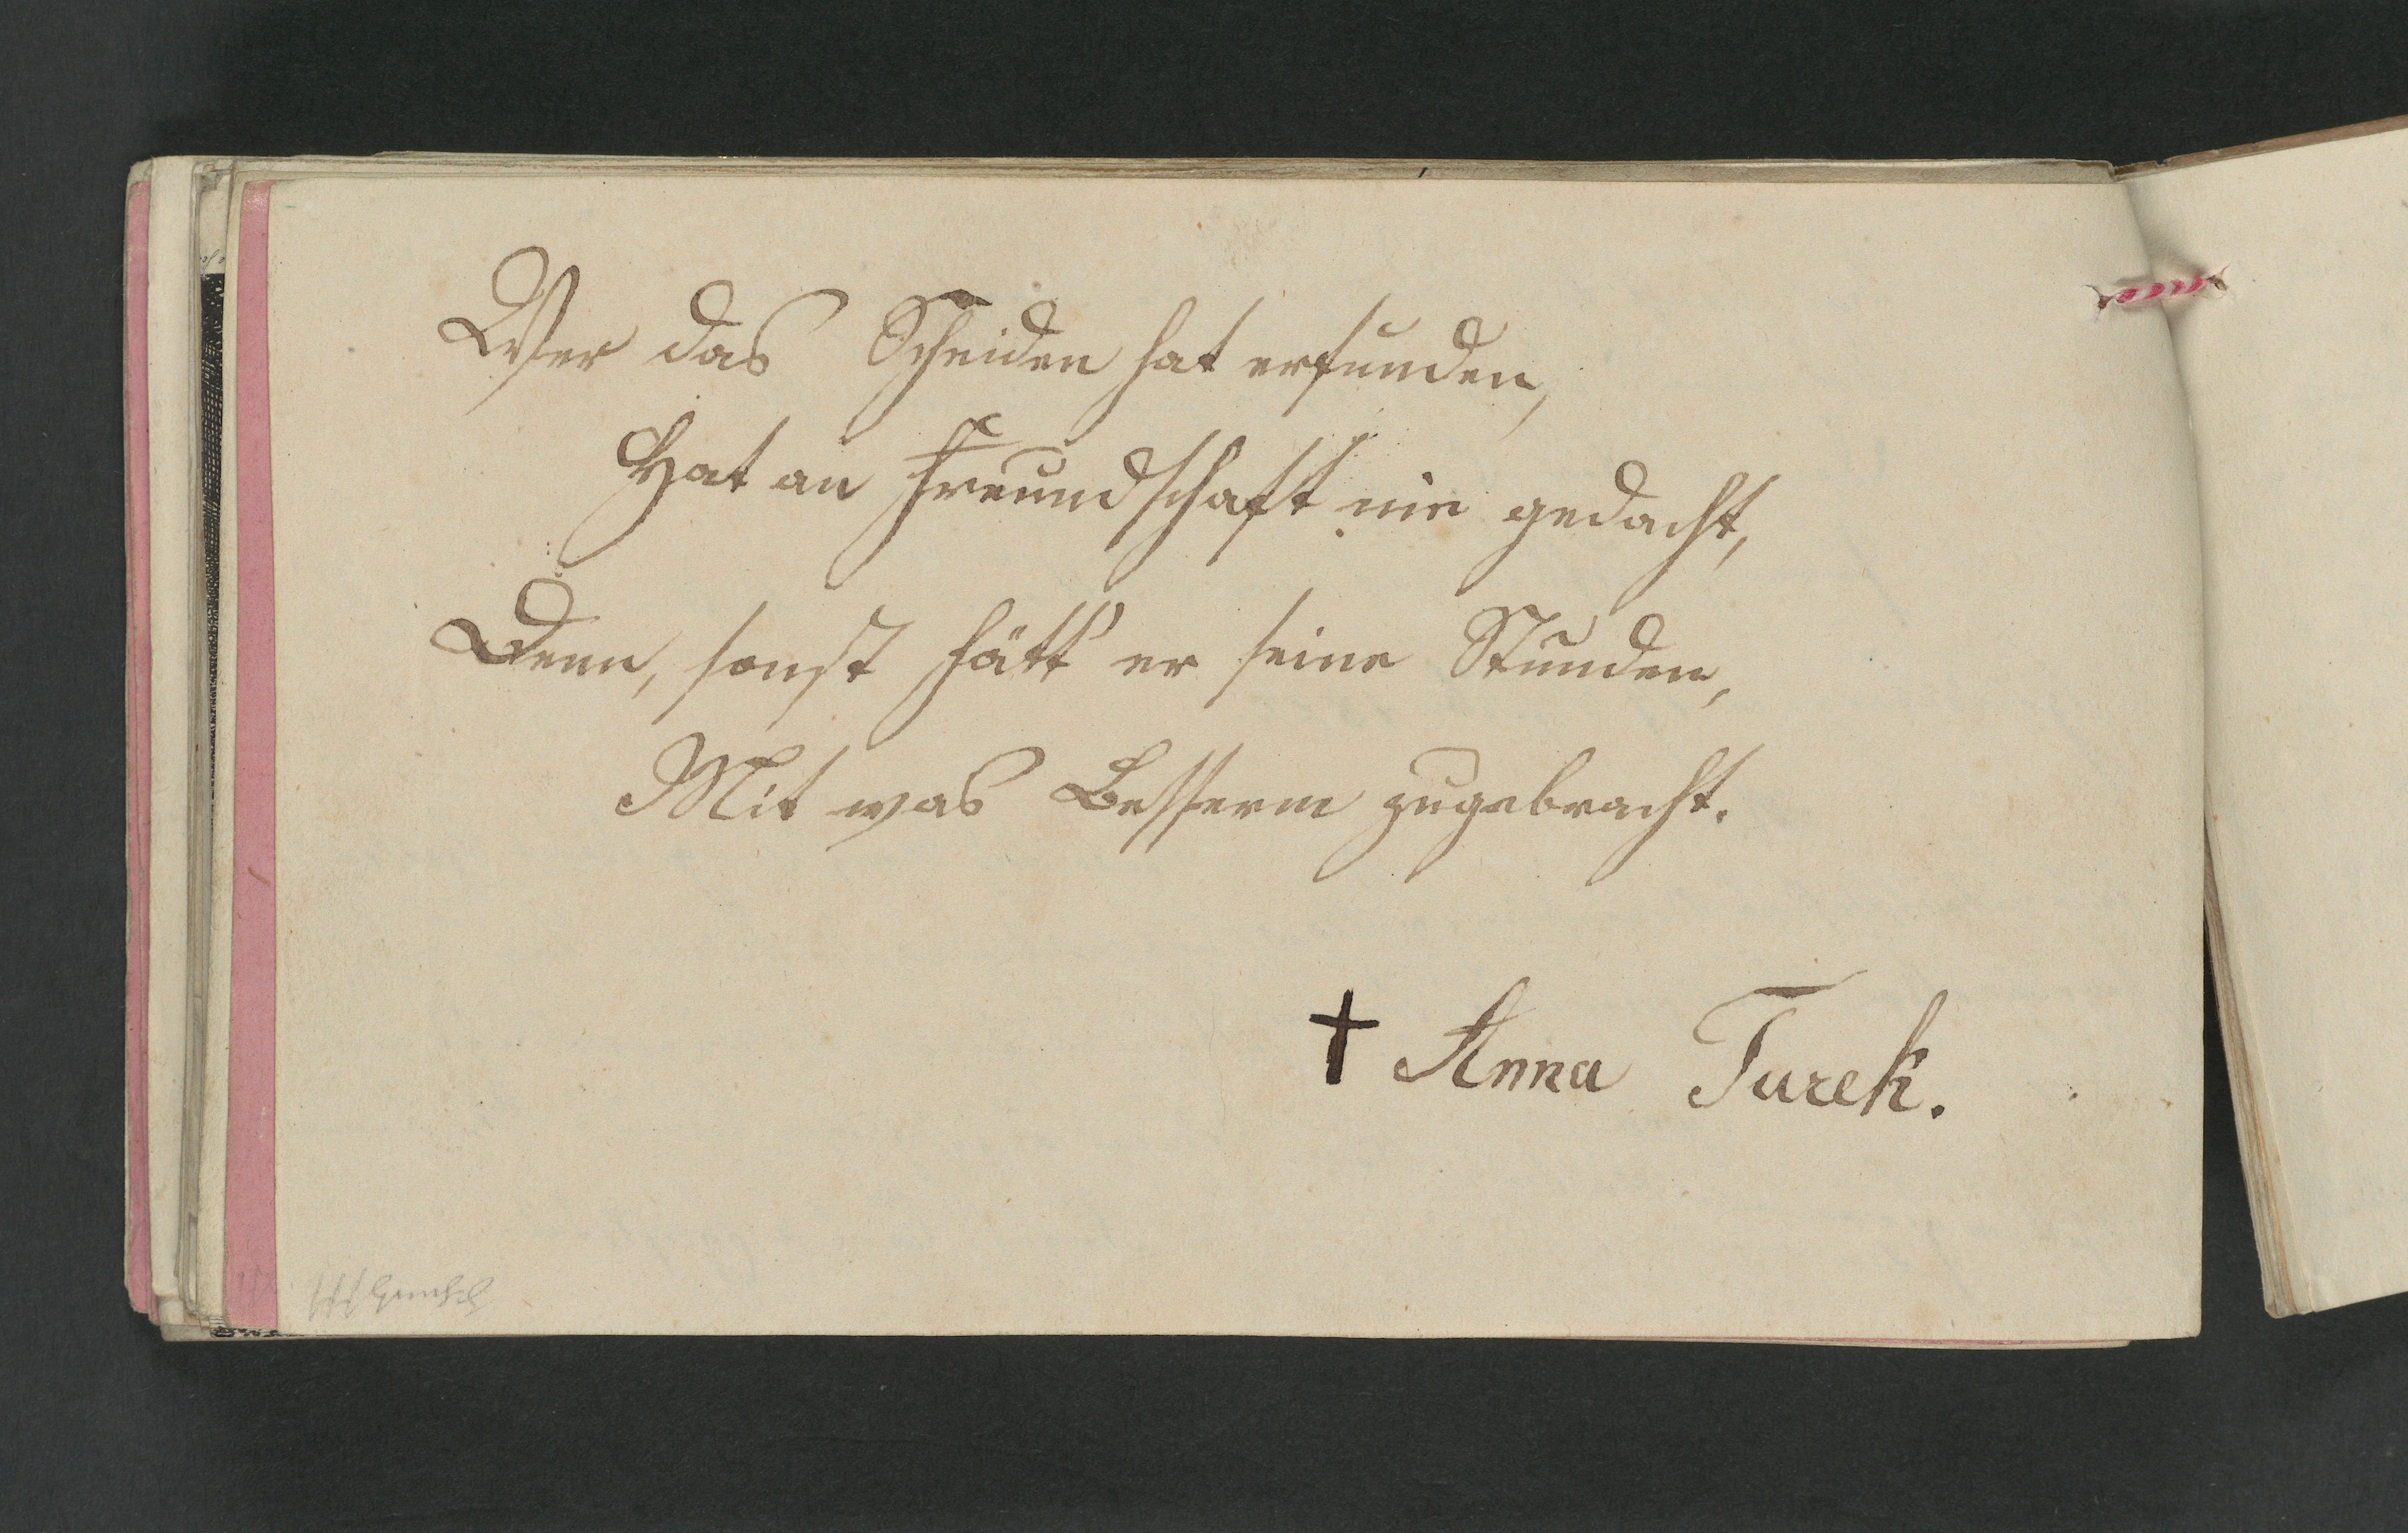 Wer das Scheiden hat erfunden,
Hat an Freundschaft nie gedacht,
Denn, sonst hätt' er seine Stunden,
Mit was Besserm zugebracht.
† Anna Turek.